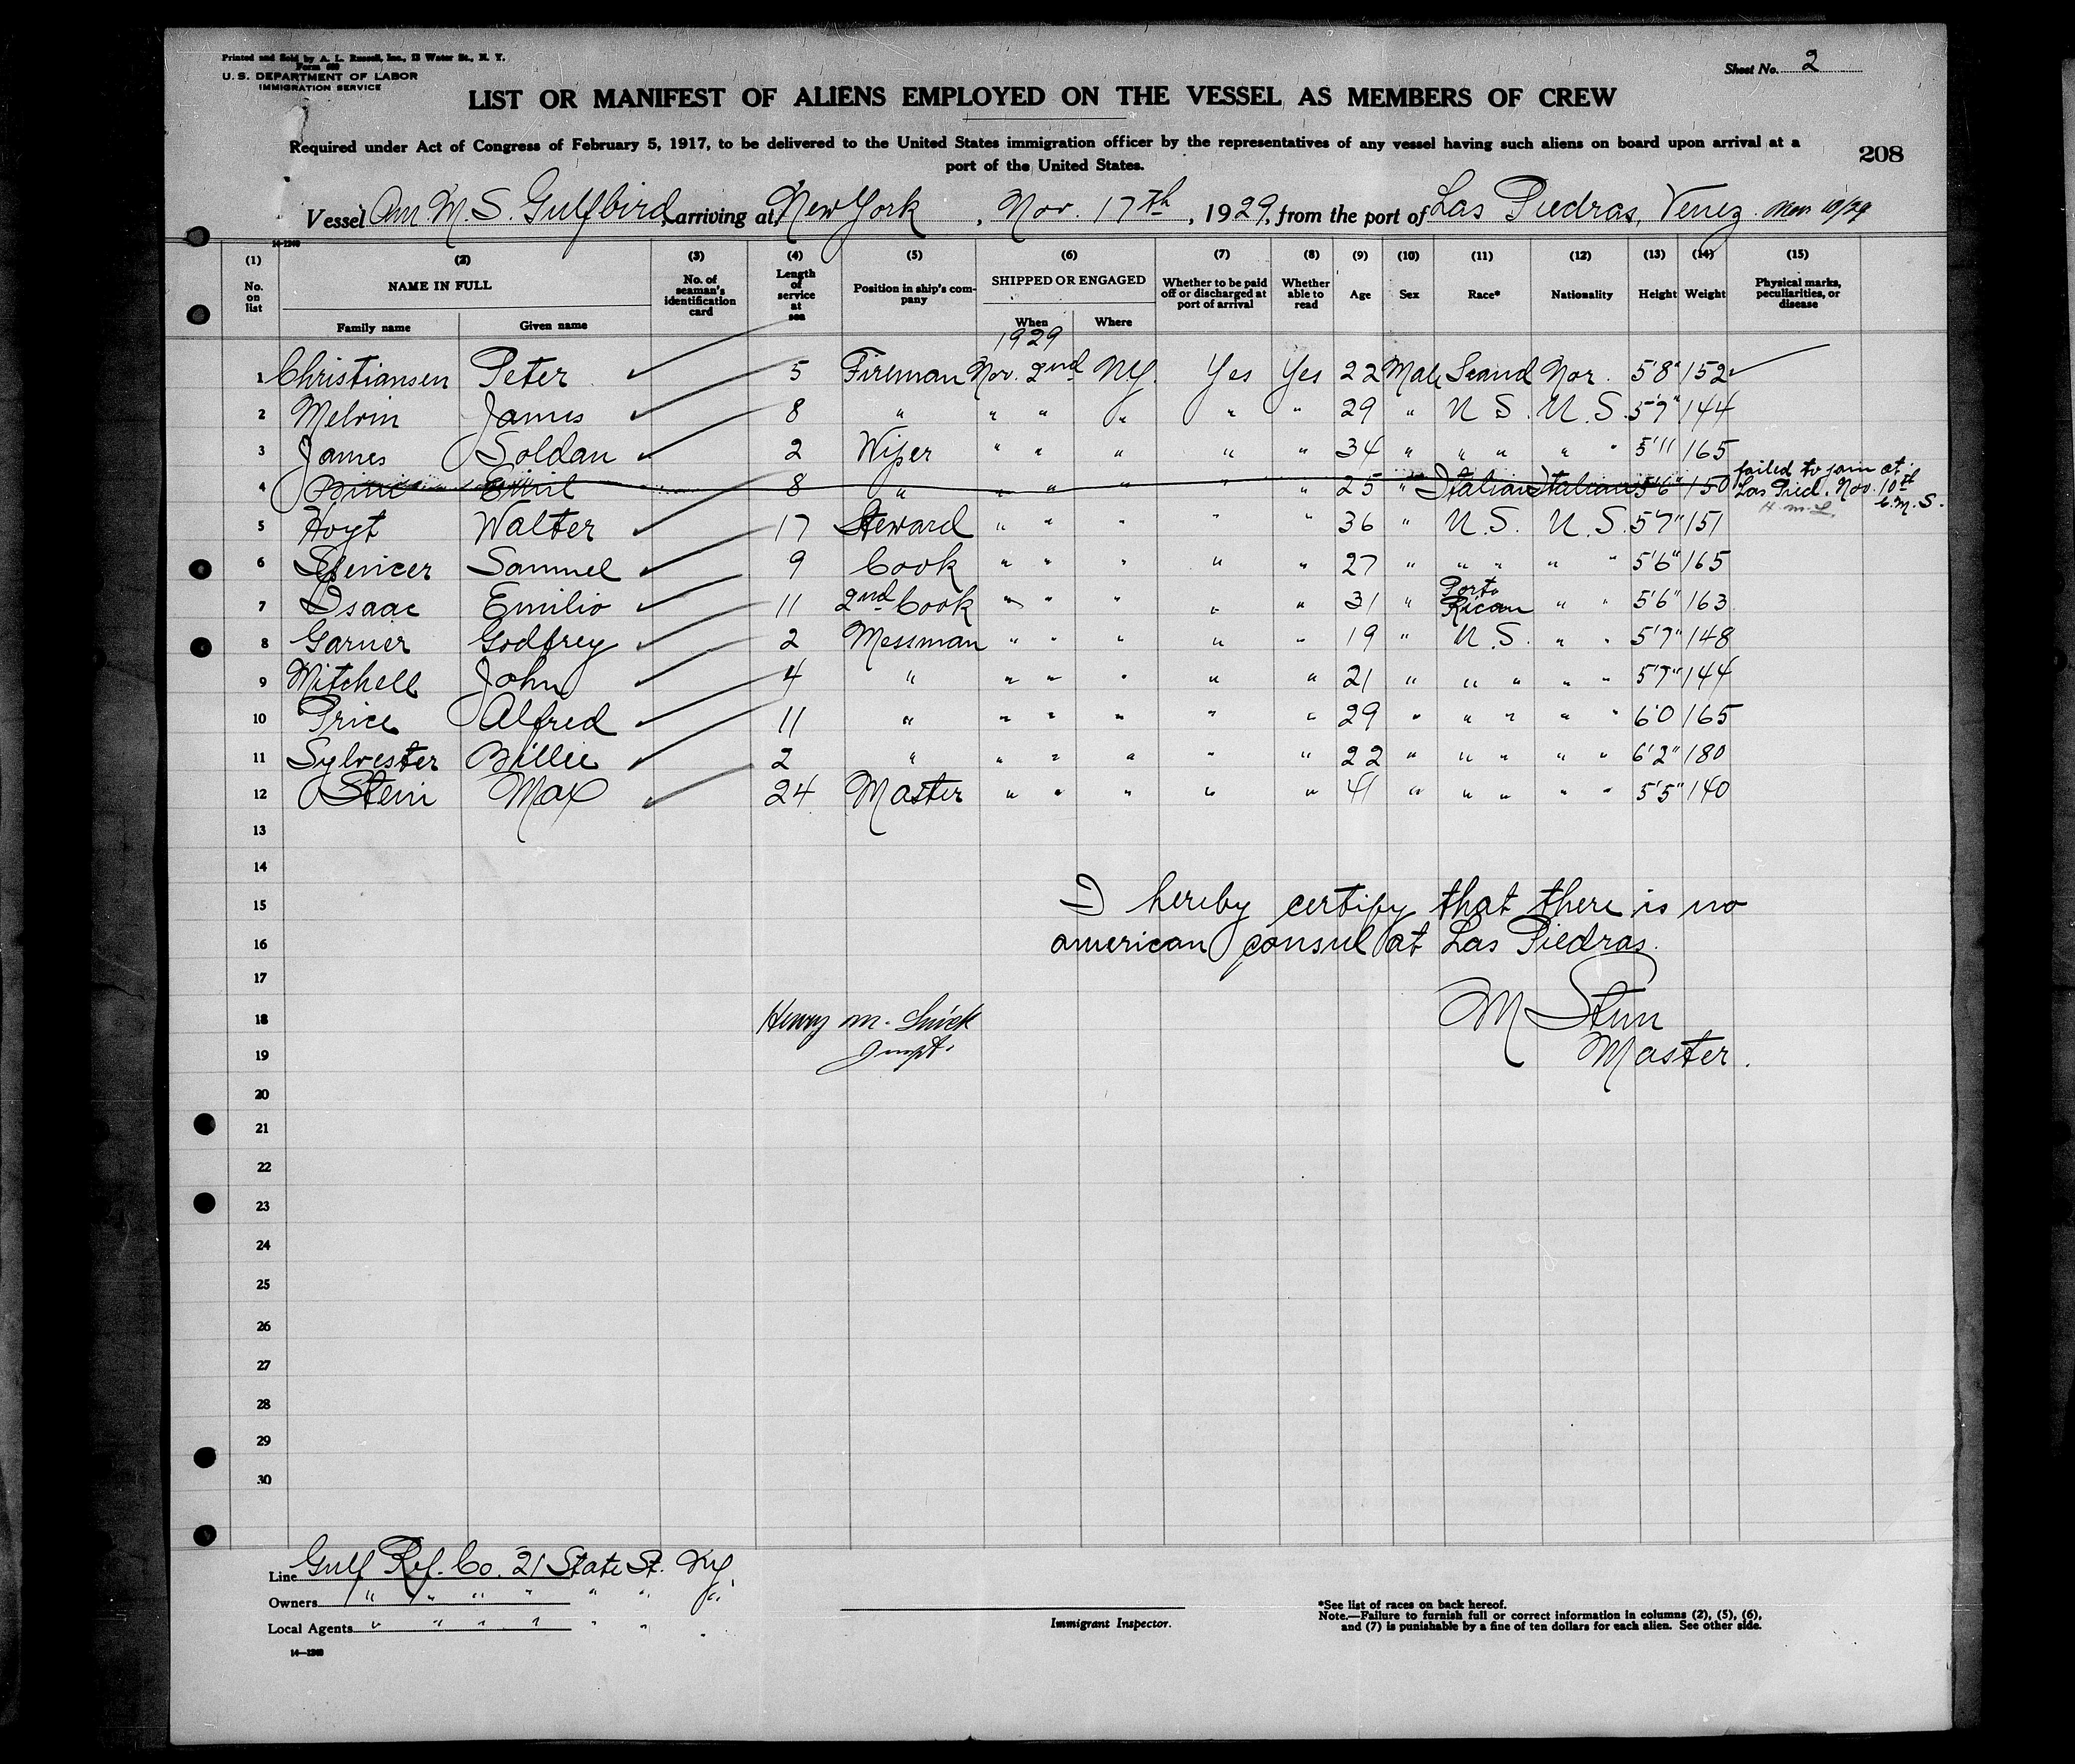 Printed and Sold by A. L. Russell, Inc., 13 Water St., N. Y.
Form 680
U. S. DEPARTMENT OF LABOR
IMMIGRATION SERVICE
Sheet No. 2
LIST OR MANIFEST OF ALIENS EMPLOYED ON THE VESSEL AS MEMBERS OF CREW
Required under Act of Congress of February 5, 1917, to be delivered to the United States immigration officer by the representatives of any vessel having such aliens on board upon arrival at a
port of the United States.
208
Vessel Am. M. S. Gulfbird, arriving at New York, Nov. 17th, 1929, from the port of Las Piedras, Venez.
14-1240
(1) (2) (3) (4) (5) (6) (7) (8) (9) (10) (11) (12) (13) (14) (15)
No. on list NAME IN FULL No. of seaman's identification card Length of service at sea Position in ship's company SHIPPED OR ENGAGED Whether to be paid off or discharged at port of arrival Whether able to read Age Sex Race* Nationality Height Weight Physical marks, peculiarities, or disease
Family name Given name When Where
1929
1 Christiansen Peter 5 Fireman Nov. 2nd N.Y. Yes Yes 22 Male Scand Nor. 5'8" 152
2 Melvin James 8 " " " " " " 29 " U.S. U.S. 5'7" 144
3 James Soldan 2 Wiper " " " " " 34 " " " " " 5'11 165
4 Emil 8 " " " " " " 25 " Italian Italian 5'6" 150 failed to join at
Las Pied. Nov. 10th
H. M. L. C. M. S.
5 Hoyt Walter 17 Steward " " " " " 36 " U.S. U.S. 5'7" 151
6 Spencer Samuel 9 Cook " " " " " 27 " " " " " 5'6" 165
7 Isaac Emilio 11 2nd Cook " " " " " 31 " Porto Rican " " 5'6" 163
8 Garner Godfrey 2 Messman " " " " " 19 " U.S. " " 5'7" 148
9 Mitchell John 4 " " " " " " 21 " " " " " 5'7" 144
10 Price Alfred 11 " " " " " " 29 " " " " " 6'0 165
11 Sylvester Billie 2 " " " " " " 22 " " " " " 6'2" 180
12 Stein Max 24 Master " " " " " 41 " " " " " 5'5" 140
13
14
15 I hereby certify that there is no
16 american consul at Las Piedras.
17
18 Henry M. M Stein
19 Master.
20
21
22
23
24
25
26
27
28
29
30
Line Gulf Ref. Co. 21 State St. N.Y.
Owners " " " " " " "
Local Agents " " " " " " "
14-1240
Immigrant Inspector.
*See list of races on back hereof.
Note.—Failure to furnish full or correct information in columns (2), (5), (6),
and (7) is punishable by a fine of ten dollars for each alien. See other side.